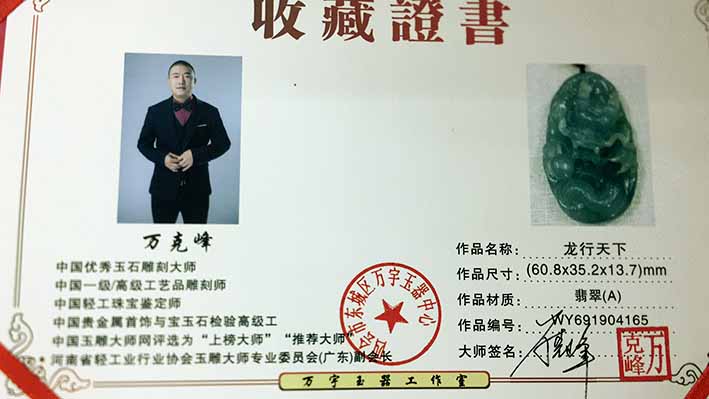 收藏證書
万克峰
中国优秀玉石雕刻大师
中国一级/高级工艺品雕刻师
中国轻工珠宝鉴定师
中国贵金属首饰与宝玉石检验高级工
中国玉雕大师网评选为“上榜大师”“推荐大师”
河南省轻工业行业协会玉雕大师专业委员会(广东)副会长
四会市东城区万宇玉器中心
作品名称: 龙行天下
作品尺寸: (60.8x35.2x13.7)mm
作品材质: 翡翠(A)
作品编号: WY691904165
大师签名:
万克峰
万宇玉器工作室